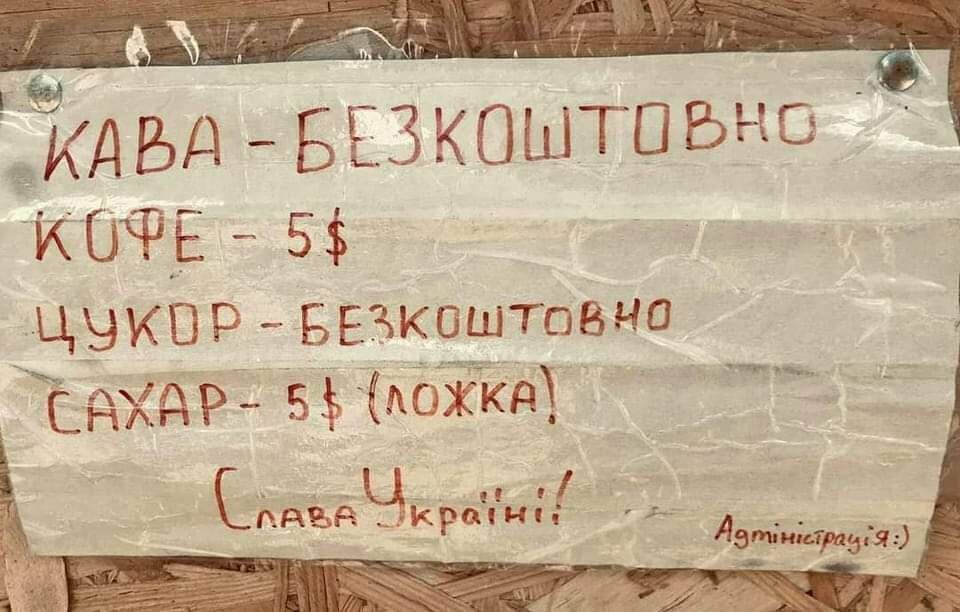 КАВА - БЕЗКОШТОВНО
КОФЕ - 5$
ЦУКОР - БЕЗКОШТОВНО
САХАР - 5$ (ЛОЖКА)
Слава Україні!
Адміністрація :)